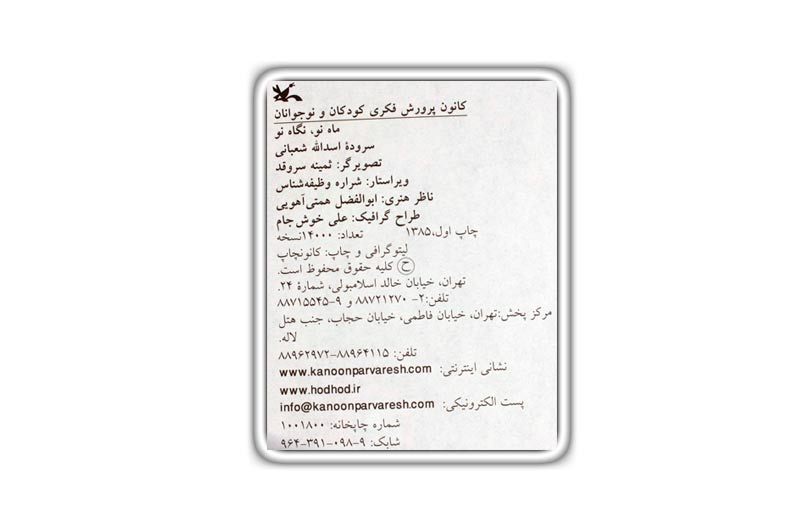 کانون پرورش فکری کودکان و نوجوانان
ماه نو، نگاه نو
سرودهٔ اسدالله شعبانی
تصویرگر: ثمینه سروقد
ویراستار: شراره وظیفه‌شناس
ناظر هنری: ابوالفضل همتی‌آهویی
طراح گرافیک: علی خوش‌جام
چاپ اول،۱۳۸۵ تعداد: ۱۴۰۰۰نسخه
لیتوگرافی و چاپ: کانونچاپ
ح کلیه حقوق محفوظ است.
تهران، خیابان خالد اسلامبولی، شمارهٔ ۲۴.
تلفن:۲- ۸۸۷۲۱۲۷۰ و ۹-۸۸۷۱۵۵۴۵
مرکز پخش:تهران، خیابان فاطمی، خیابان حجاب، جنب هتل
لاله.
تلفن: ۸۸۹۶۴۱۱۵-۸۸۹۶۲۹۷۲
نشانی اینترنتی: www.kanoonparvaresh.com
www.hodhod.ir
پست الکترونیکی: info@kanoonparvaresh.com
شماره چاپخانه: ۱۰۰۱۸۰۰
شابک: ۹-۰۹۸-۳۹۱-۹۶۴